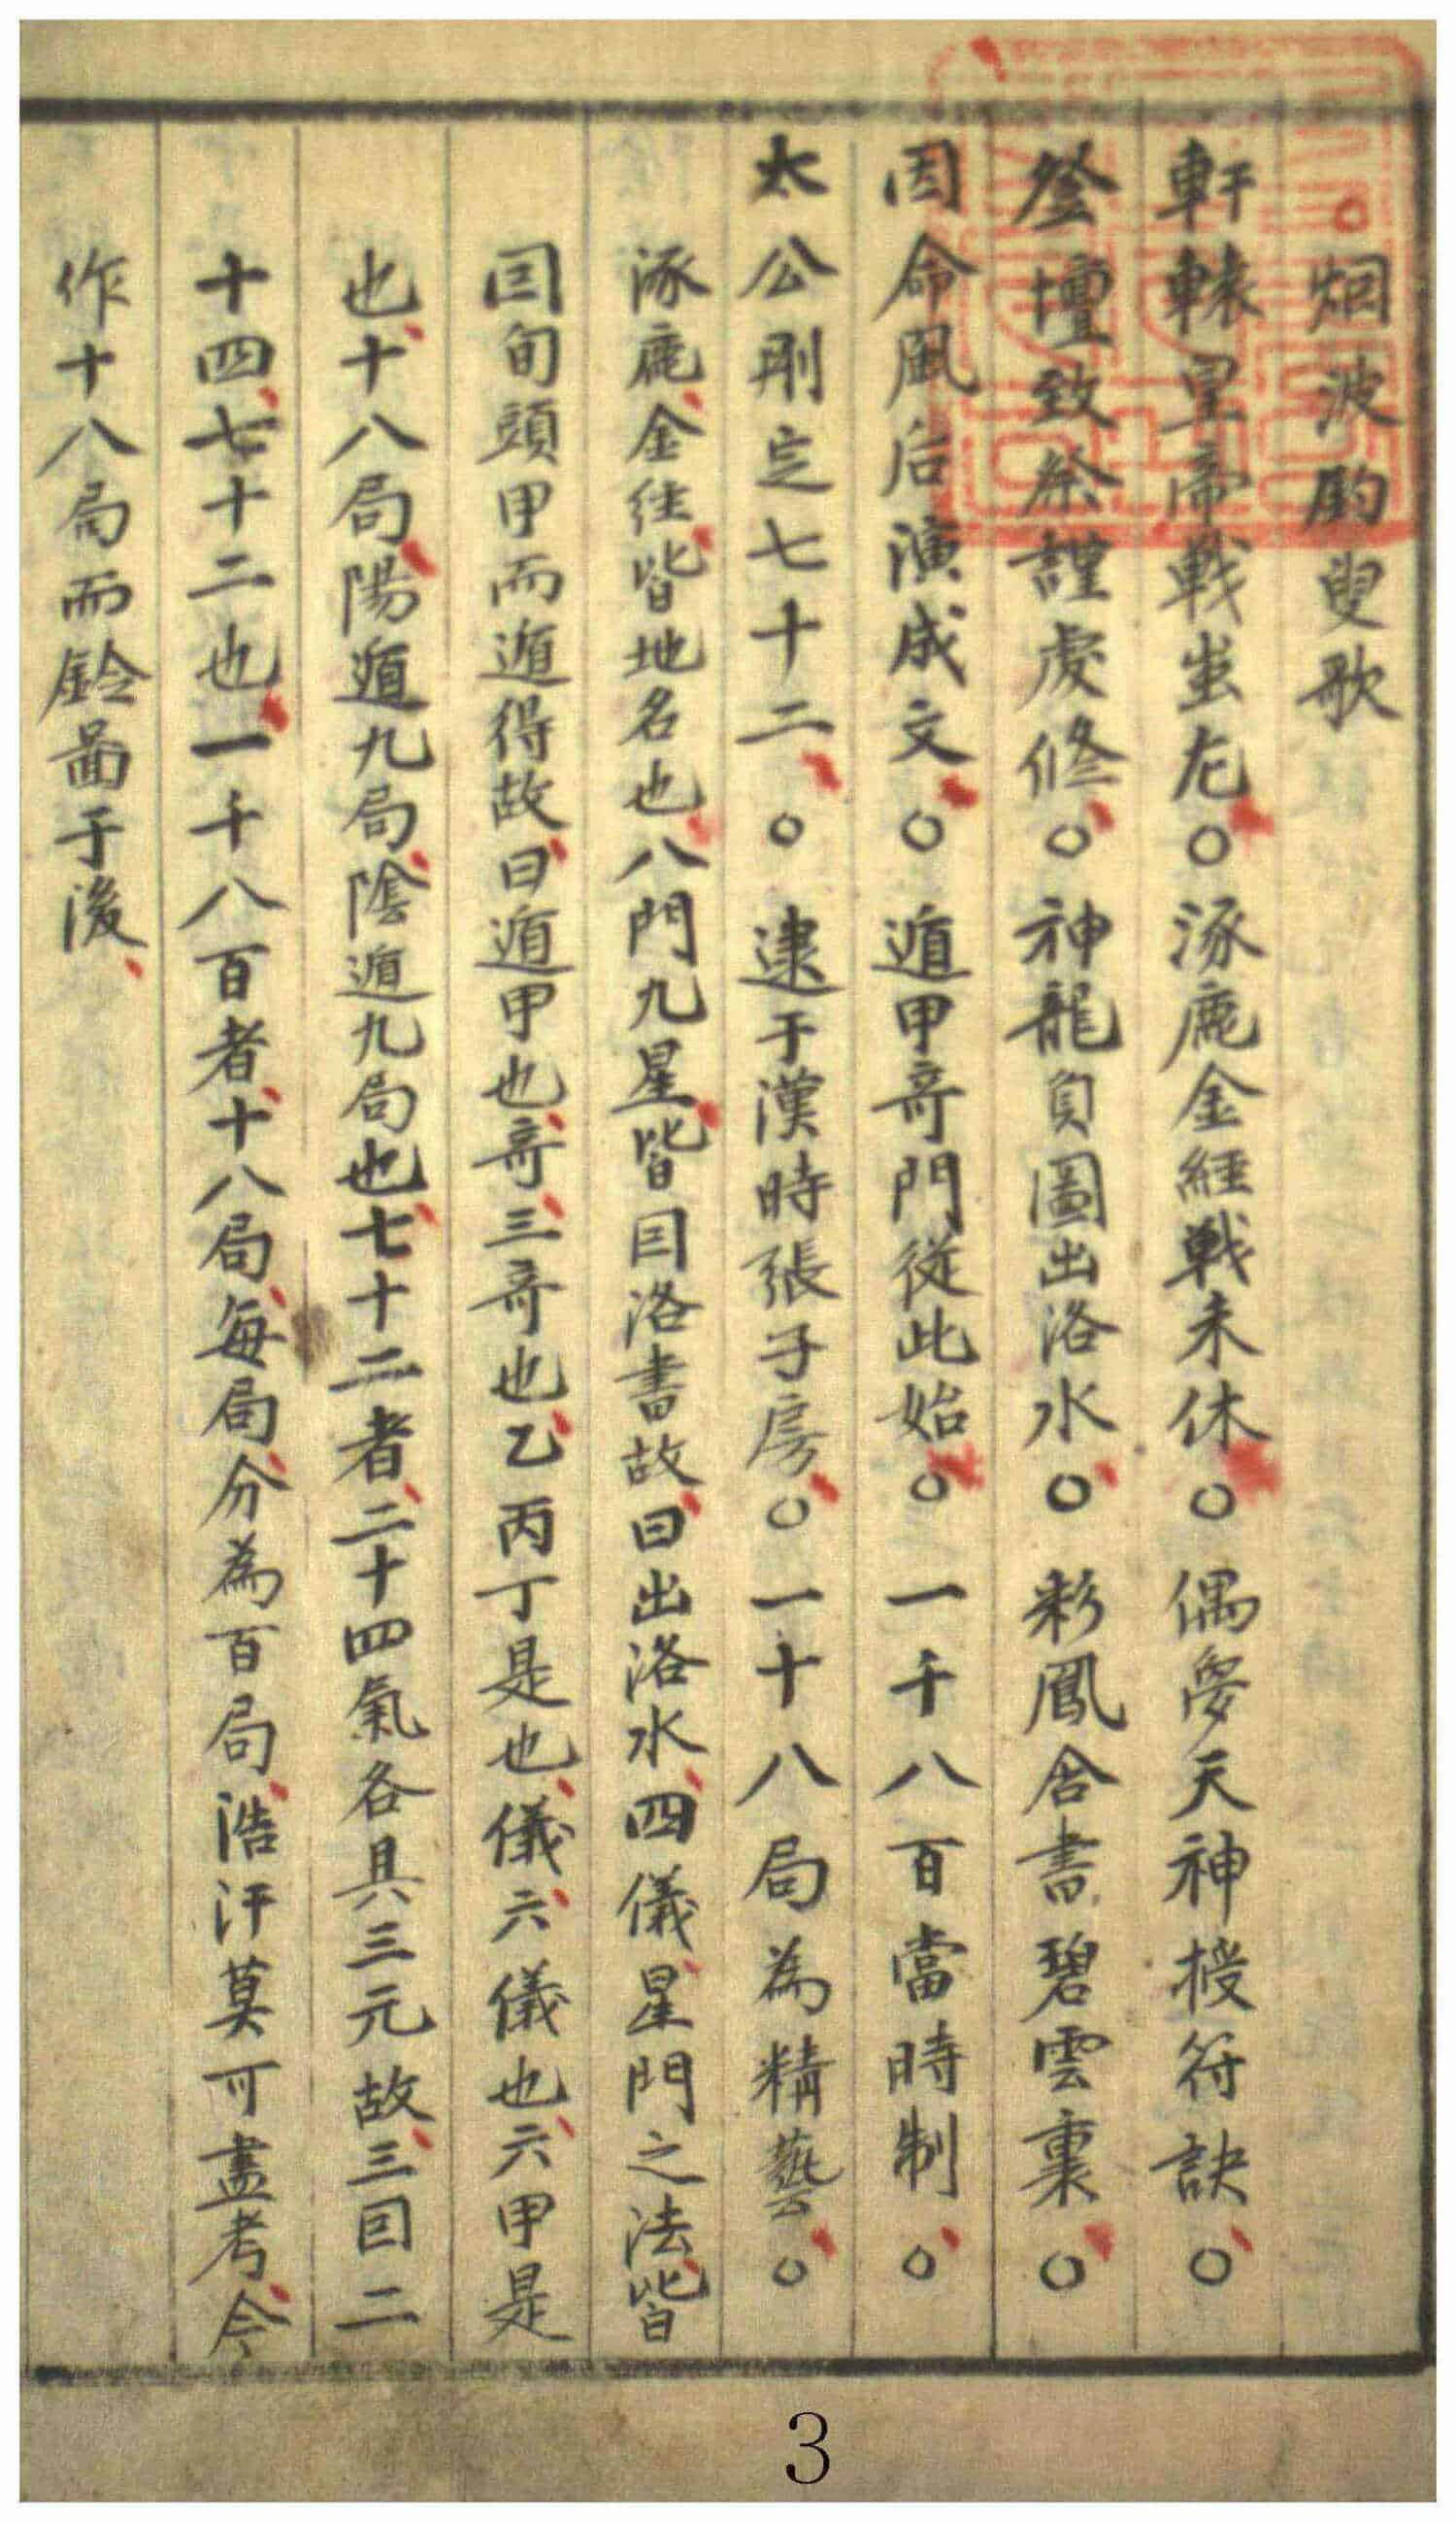 ○烟波釣叟歌
軒轅皇帝戰蚩尤○涿鹿金經戰未休○偶夢天神授符訣○
登壇致祭謹虔修○神龍負圖出洛水○彩鳳舍書碧雲裏○
因命風后演成文○遁甲竒門從此始○一千八百當時制○
太公刪定七十二○逮于漢時張子房○一十八局為精藝○
涿鹿金徃皆地名也八門九星皆囙洛書故曰出洛水四儀星門之法皆
囙旬頭甲而遁得故曰遁甲也竒三竒也乙丙丁是也儀六儀也六甲是
也十八局陽遁九局陰遁九局也七十二者二十四氣各具三元故三囙二
十四七十二也一千八百者十八局每局分為百局浩汗莫可盡考今
作十八局而鈴啚于後
3